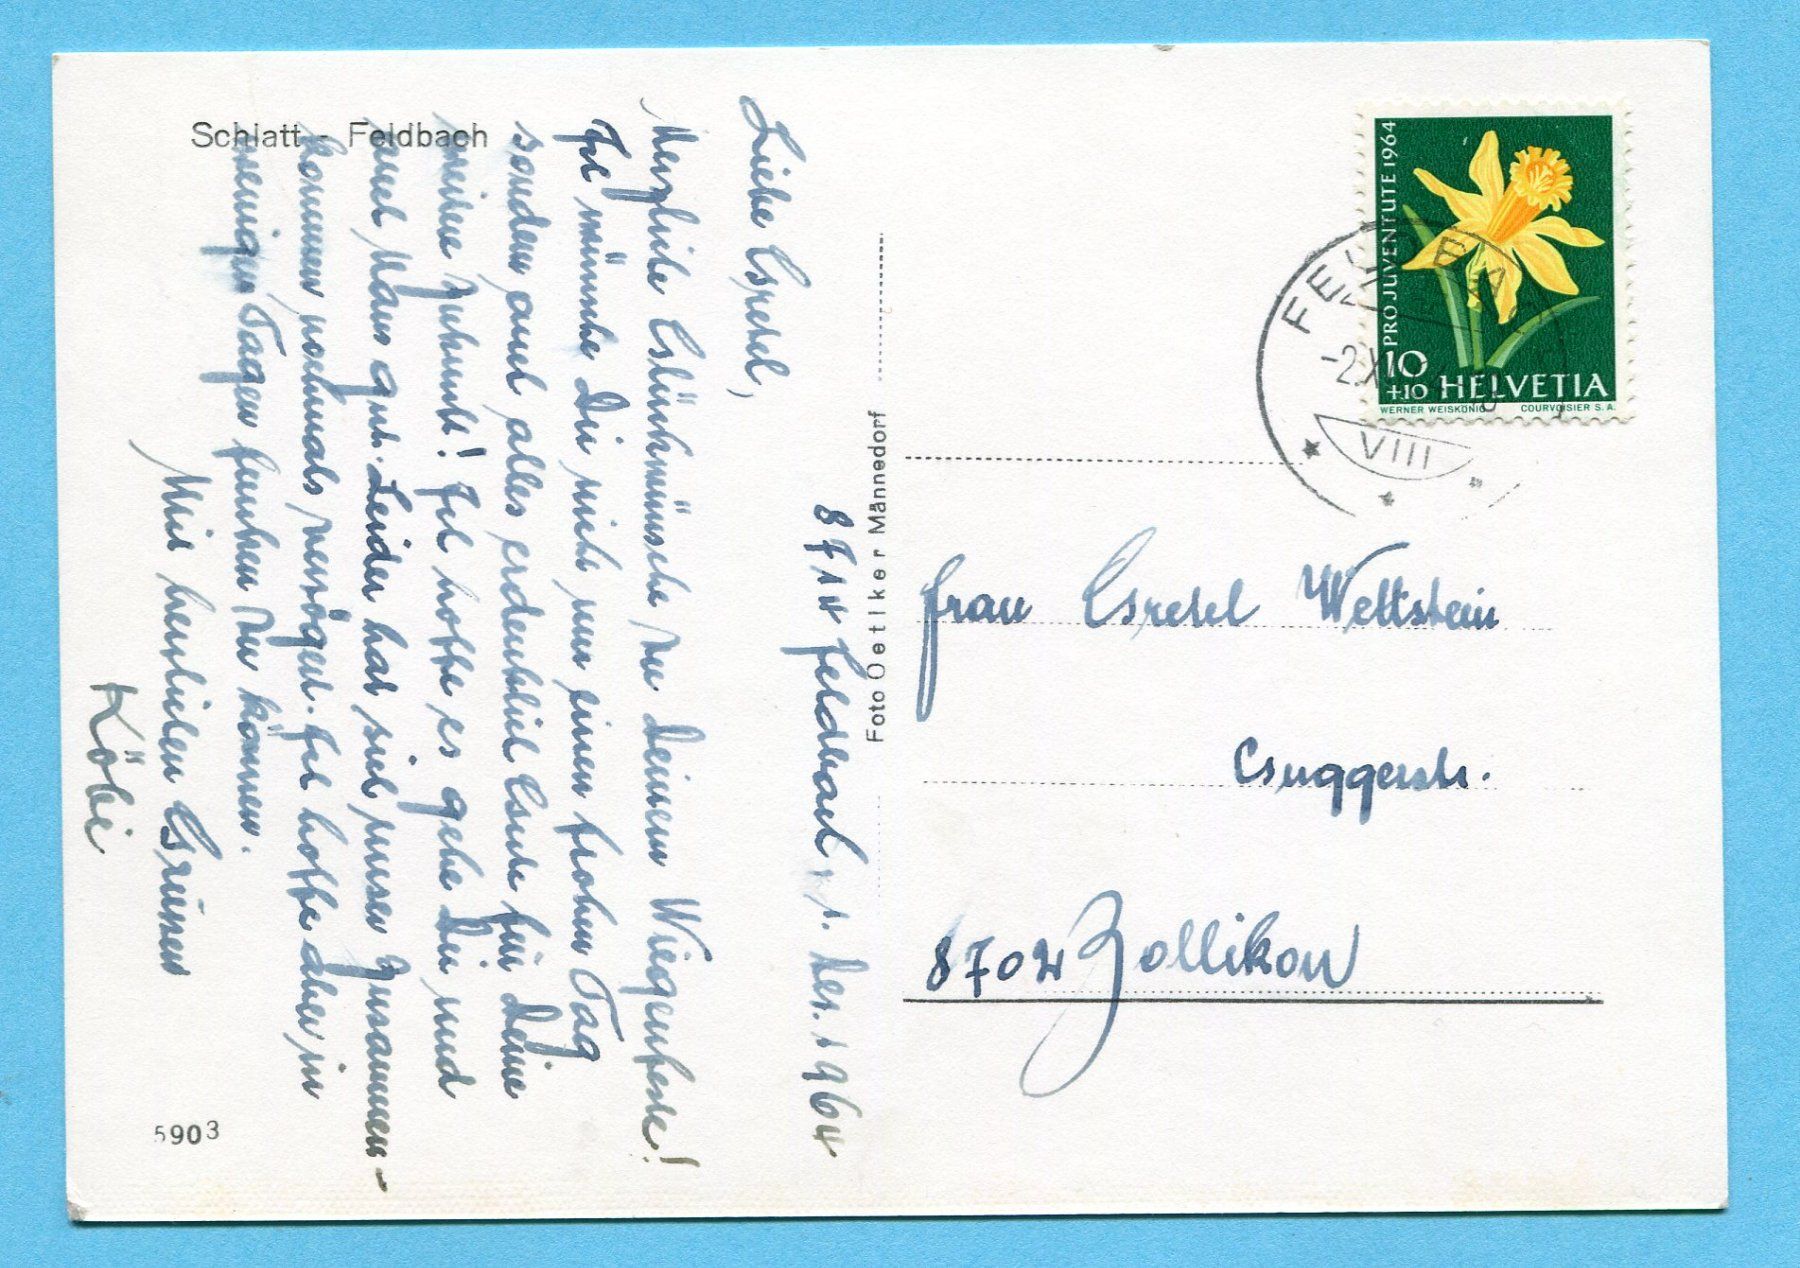 Schlatt - Feldbach
8714 Feldbach, 1. Dez. 1964
Liebe Gretel,
Herzliche Glückwünsche zu Deinem Wiegenfeste!
Ich wünsche Dir nicht nur einen frohen Tag
sondern auch alles erdenklich Gute für Deine
weitere Zukunft! Ich hoffe es gehe Dir und
auch Hans gut. Leider hat sich unser Zusammen-
kommen nochmals verzögert. Ich hoffe aber in
wenigen Tagen zu können.
Mit herzlichen Grüssen
Köbi
5903
Foto Oetiker Männedorf
PRO JUVENTUTE 1964
10
+10 HELVETIA
WERNER WEISKÖNIG COURVOISIER S.A.
FELDBACH
-2.XII
VIII
Frau Gretel Wettstein
Guggerstr.
8702 Zollikon